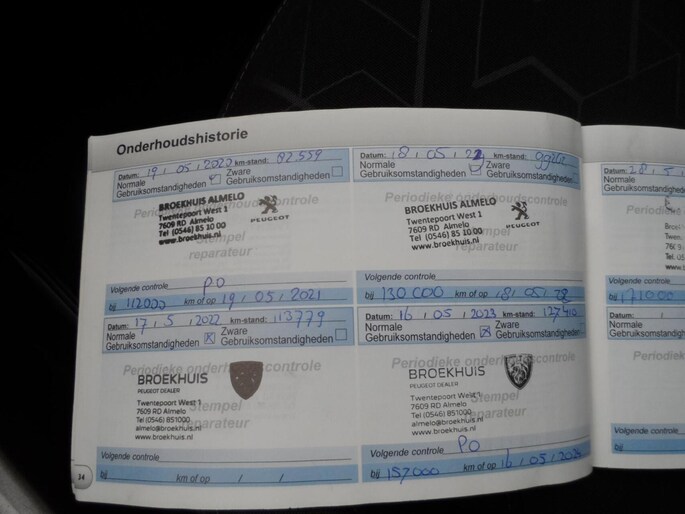 Onderhoudshistorie
Datum: 19 / 05 / 2020 km-stand: 82.559
Normale Gebruiksomstandigheden Zware Gebruiksomstandigheden
Periodieke onderhoudscontrole
BROEKHUIS ALMELO
Twentepoort West 1
7609 RD Almelo
Tel (0546) 85 10 00
www.broekhuis.nl
PEUGEOT
Stempel
reparateur
Volgende controle PO
bij 112000 km of op 19 / 05 / 2021
Datum: 18 / 05 / km-stand:
Normale Gebruiksomstandigheden Zware Gebruiksomstandigheden
Periodieke onderhoudscontrole
BROEKHUIS ALMELO
Twentepoort West 1
7609 RD Almelo
Tel (0546) 85 10 00
www.broekhuis.nl
PEUGEOT
Stempel
reparateur
Volgende controle
bij 130 000 km of op 18 / 05 /
Datum: 17 / 5 / 2022 km-stand: 113779
Normale Gebruiksomstandigheden X Zware Gebruiksomstandigheden
Periodieke onderhoudscontrole
BROEKHUIS
PEUGEOT DEALER
Twentepoort West 1
7609 RD Almelo
Tel (0546) 851000
almelo@broekhuis.nl
www.broekhuis.nl
Stempel
reparateur
Volgende controle
bij km of op / /
34
Datum: 16 / 05 / 2023 km-stand:
Normale Gebruiksomstandigheden X Zware Gebruiksomstandigheden
Periodieke onderhoudscontrole
BROEKHUIS
PEUGEOT DEALER
Twentepoort West 1
7609 RD Almelo
Tel (0546) 851000
almelo@broekhuis.nl
www.broekhuis.nl
Stempel
reparateur
Volgende controle PO
bij 157000 km of op 16 / 05 /
Datum: 28 / 5 /
Normale
Gebruiksomstandigheden
Periodiek
Volgende controle
bij 171000
Datum: /
Normale
Gebruiksomstandigheden
Periodiek
Volgende controle
bij